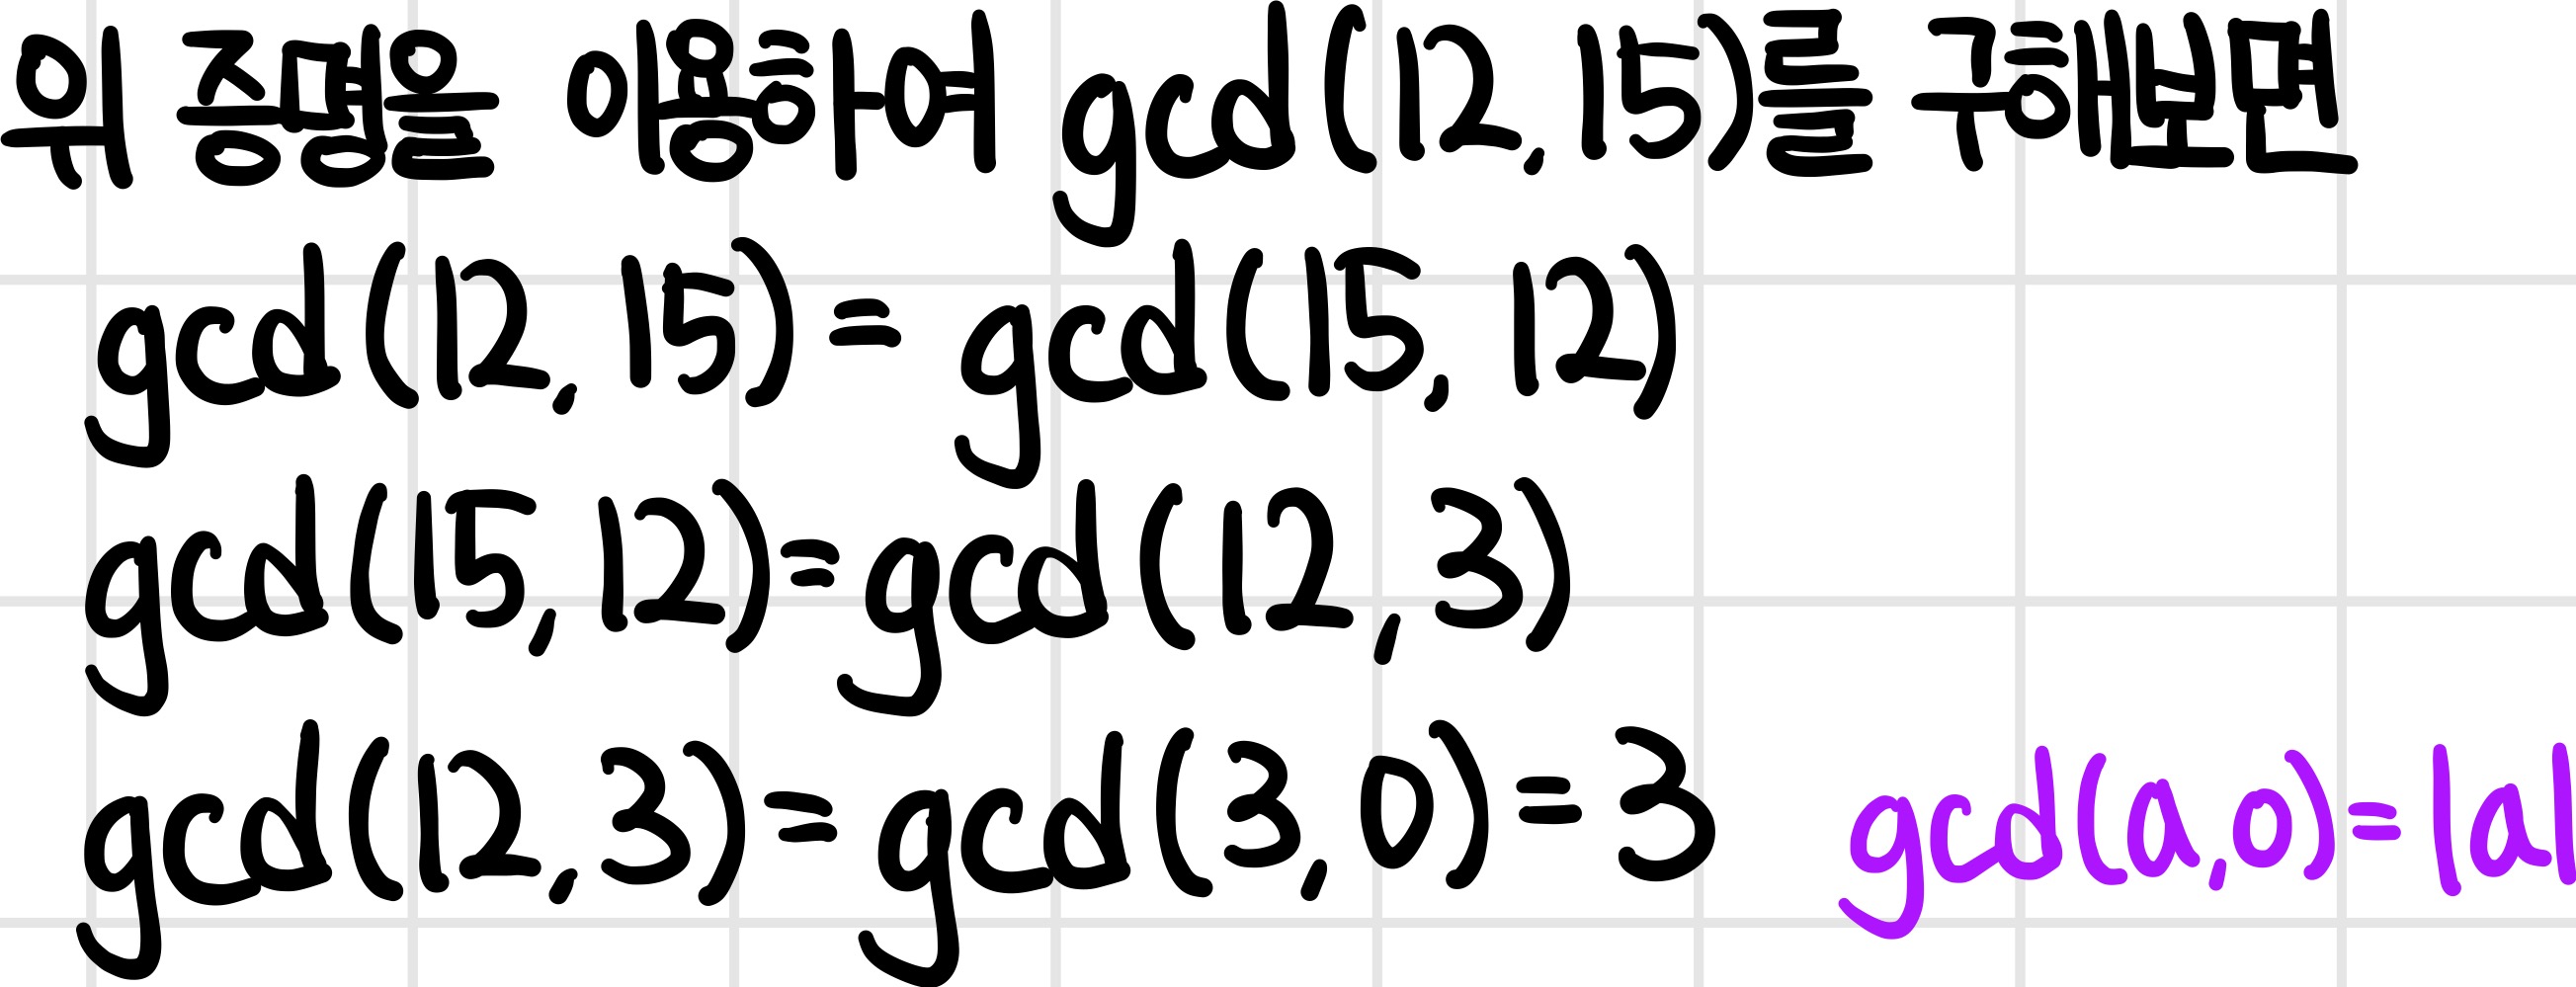 위 증명을 이용하여 gcd(12, 15)를 구해보면
gcd(12, 15) = gcd(15, 12)
gcd(15, 12) = gcd(12, 3)
gcd(12, 3) = gcd(3, 0) = 3 gcd(a, 0) = |a|